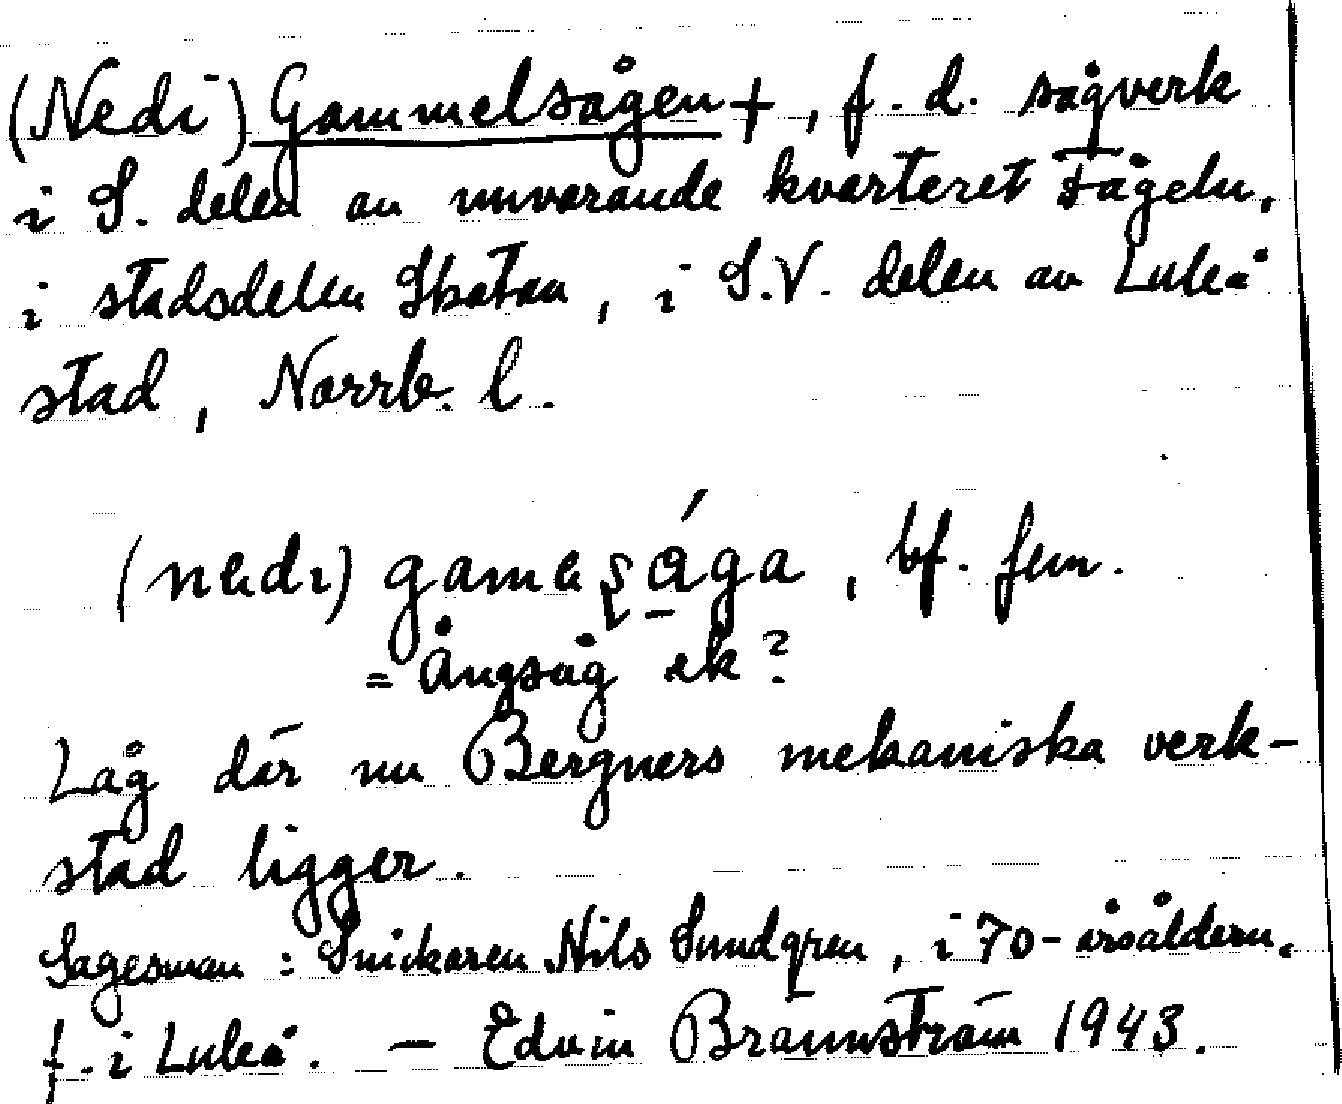 (Nedi) Gammelsågen +, f. d. sågverk
i S. delen av nuvarande kvarteret Fågeln,
i stadsdelen Skatan, i S.V. delen av Luleå
stad, Norrb. l.
(nedi) gameʂága, bf. fem.
= Ångsåg ek?
Låg där nu Bergners mekaniska verk-
stad ligger.
Sagesman: Snickaren Nils Sundgren, i 70-årsåldern.
f. i Luleå. — Edvin Brännström 1943.